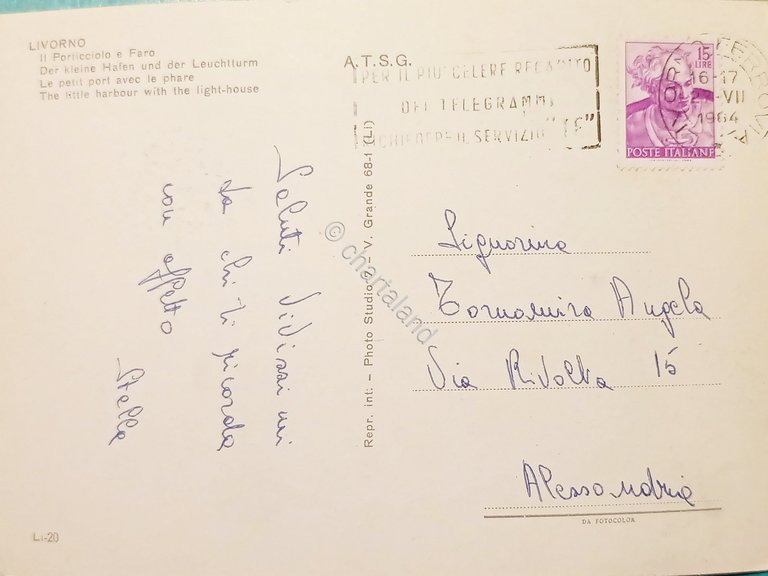 LIVORNO
Il Porticciolo e Faro
Der kleine Hafen und der Leuchtturm
Le petit port avec le phare
The little harbour with the light-house
A.T.S.G.
PER IL PIU' CELERE RECAPITO
DEI TELEGRAMMI
SERVIZIO "TF"
15
LIRE
POSTE ITALIANE
16-17
VII
1964
FERROVIA
Saluti Vivissimi
da chi ti ricorda
con affetto
Stella
Repr. int. – Photo Studio 2 – V. Grande 68-1 (LI)
© chartaland
Signorina
Tornamira Angela
Via Rivolta 15
Alessandria
DA FOTOCOLOR
Li-20